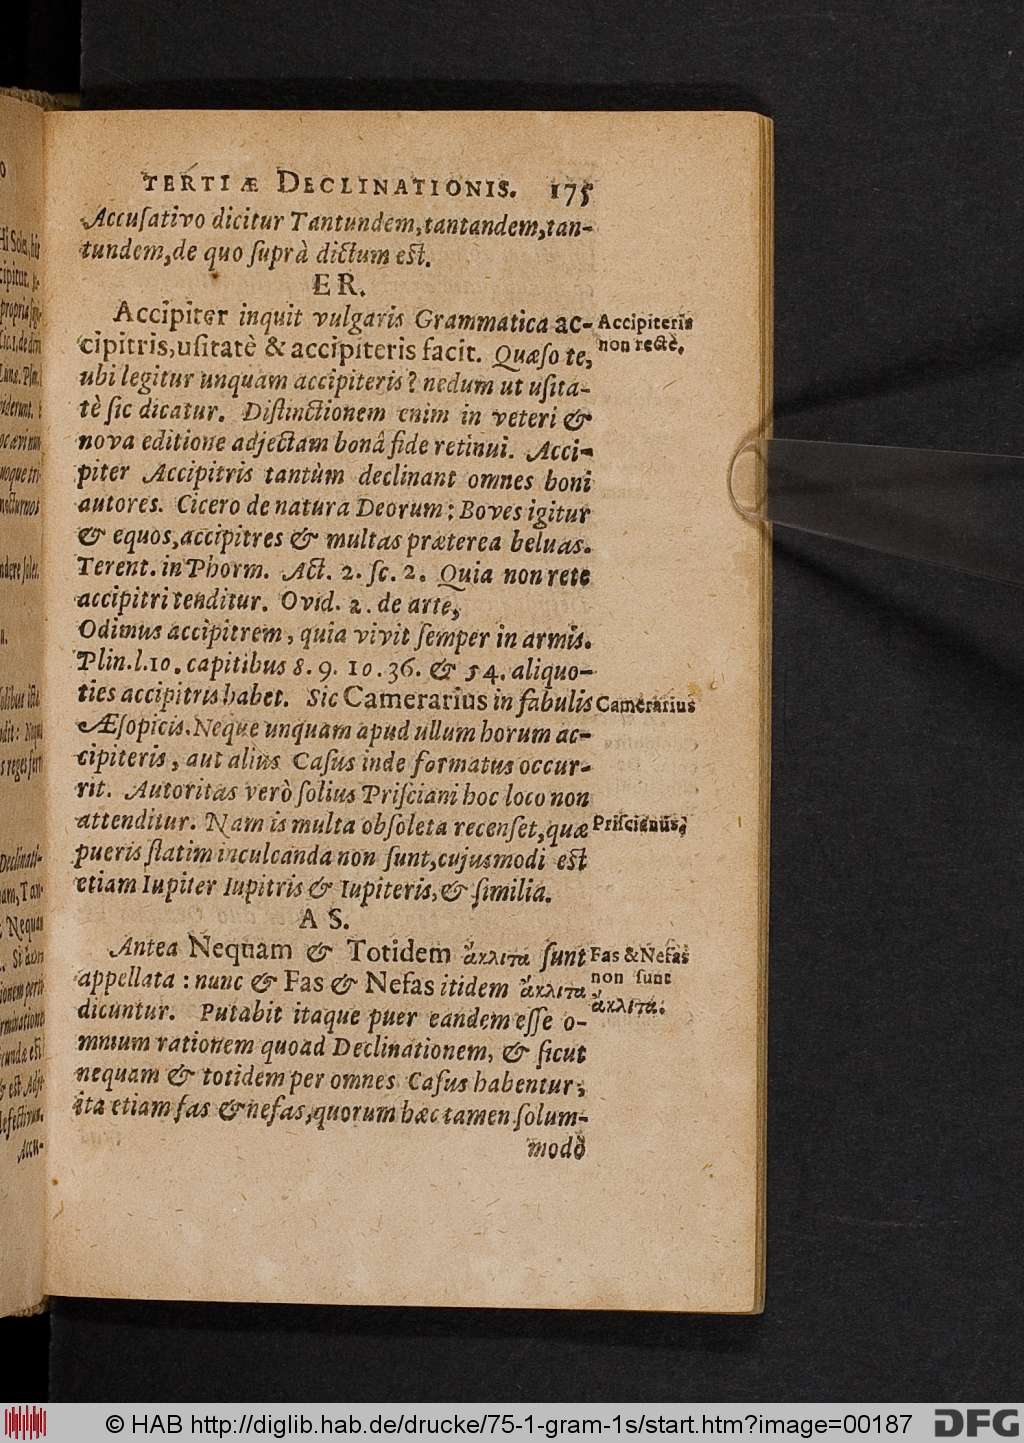 TERTIÆ DECLINATIONIS. 175
Accuſativo dicitur Tantundem, tantandem, tan-
tundem, de quo ſuprà dictum est.
ER.
Accipiter inquit vulgaris Grammatica ac-
cipitris, uſitatè & accipiteris facit. Quæſo te,
ubi legitur unquam accipiteris? nedum ut uſita-
tè ſic dicatur. Diſtinctionem enim in veteri &
nova editione adjectam bonâ fide retinui. Acci-
piter Accipitris tantùm declinant omnes boni
autores. Cicero de natura Deorum: Boves igitur
& equos, accipitres & multas præterea beluas.
Terent. in Phorm. Act. 2. ſc. 2. Quia non rete
accipitri tenditur. Ovid. 2. de arte,
Odimus accipitrem, quia vivit ſemper in armis.
Plin. l. 10. capitibus 8. 9. 10. 36. & 54. aliquo-
ties accipitris habet. Sic Camerarius in fabulis
Æſopicis. Neque unquam apud ullum horum ac-
cipiteris, aut alius Caſus inde formatus occur-
rit. Autoritas verò ſolius Priſciani hoc loco non
attenditur. Nam is multa obſoleta recenſet, quæ
pueris ſtatim inculcanda non ſunt, cujusmodi est
etiam Iupiter Iupitris & Iupiteris, & ſimilia.
AS.
Antea Nequam & Totidem ἄκλιτα ſunt
appellata: nunc & Fas & Nefas itidem ἄκλιτα
dicuntur. Putabit itaque puer eandem eſſe o-
mnium rationem quoad Declinationem, & ſicut
nequam & totidem per omnes Caſus habentur,
ita etiam fas & nefas, quorum hæc tamen ſolum-
modò
Accipiteris
non rectè.
Camerarius
Priſcianus.
Fas & Nefas
non ſunt
ἄκλιτα.
© HAB http://diglib.hab.de/drucke/75-1-gram-1s/start.htm?image=00187
DFG